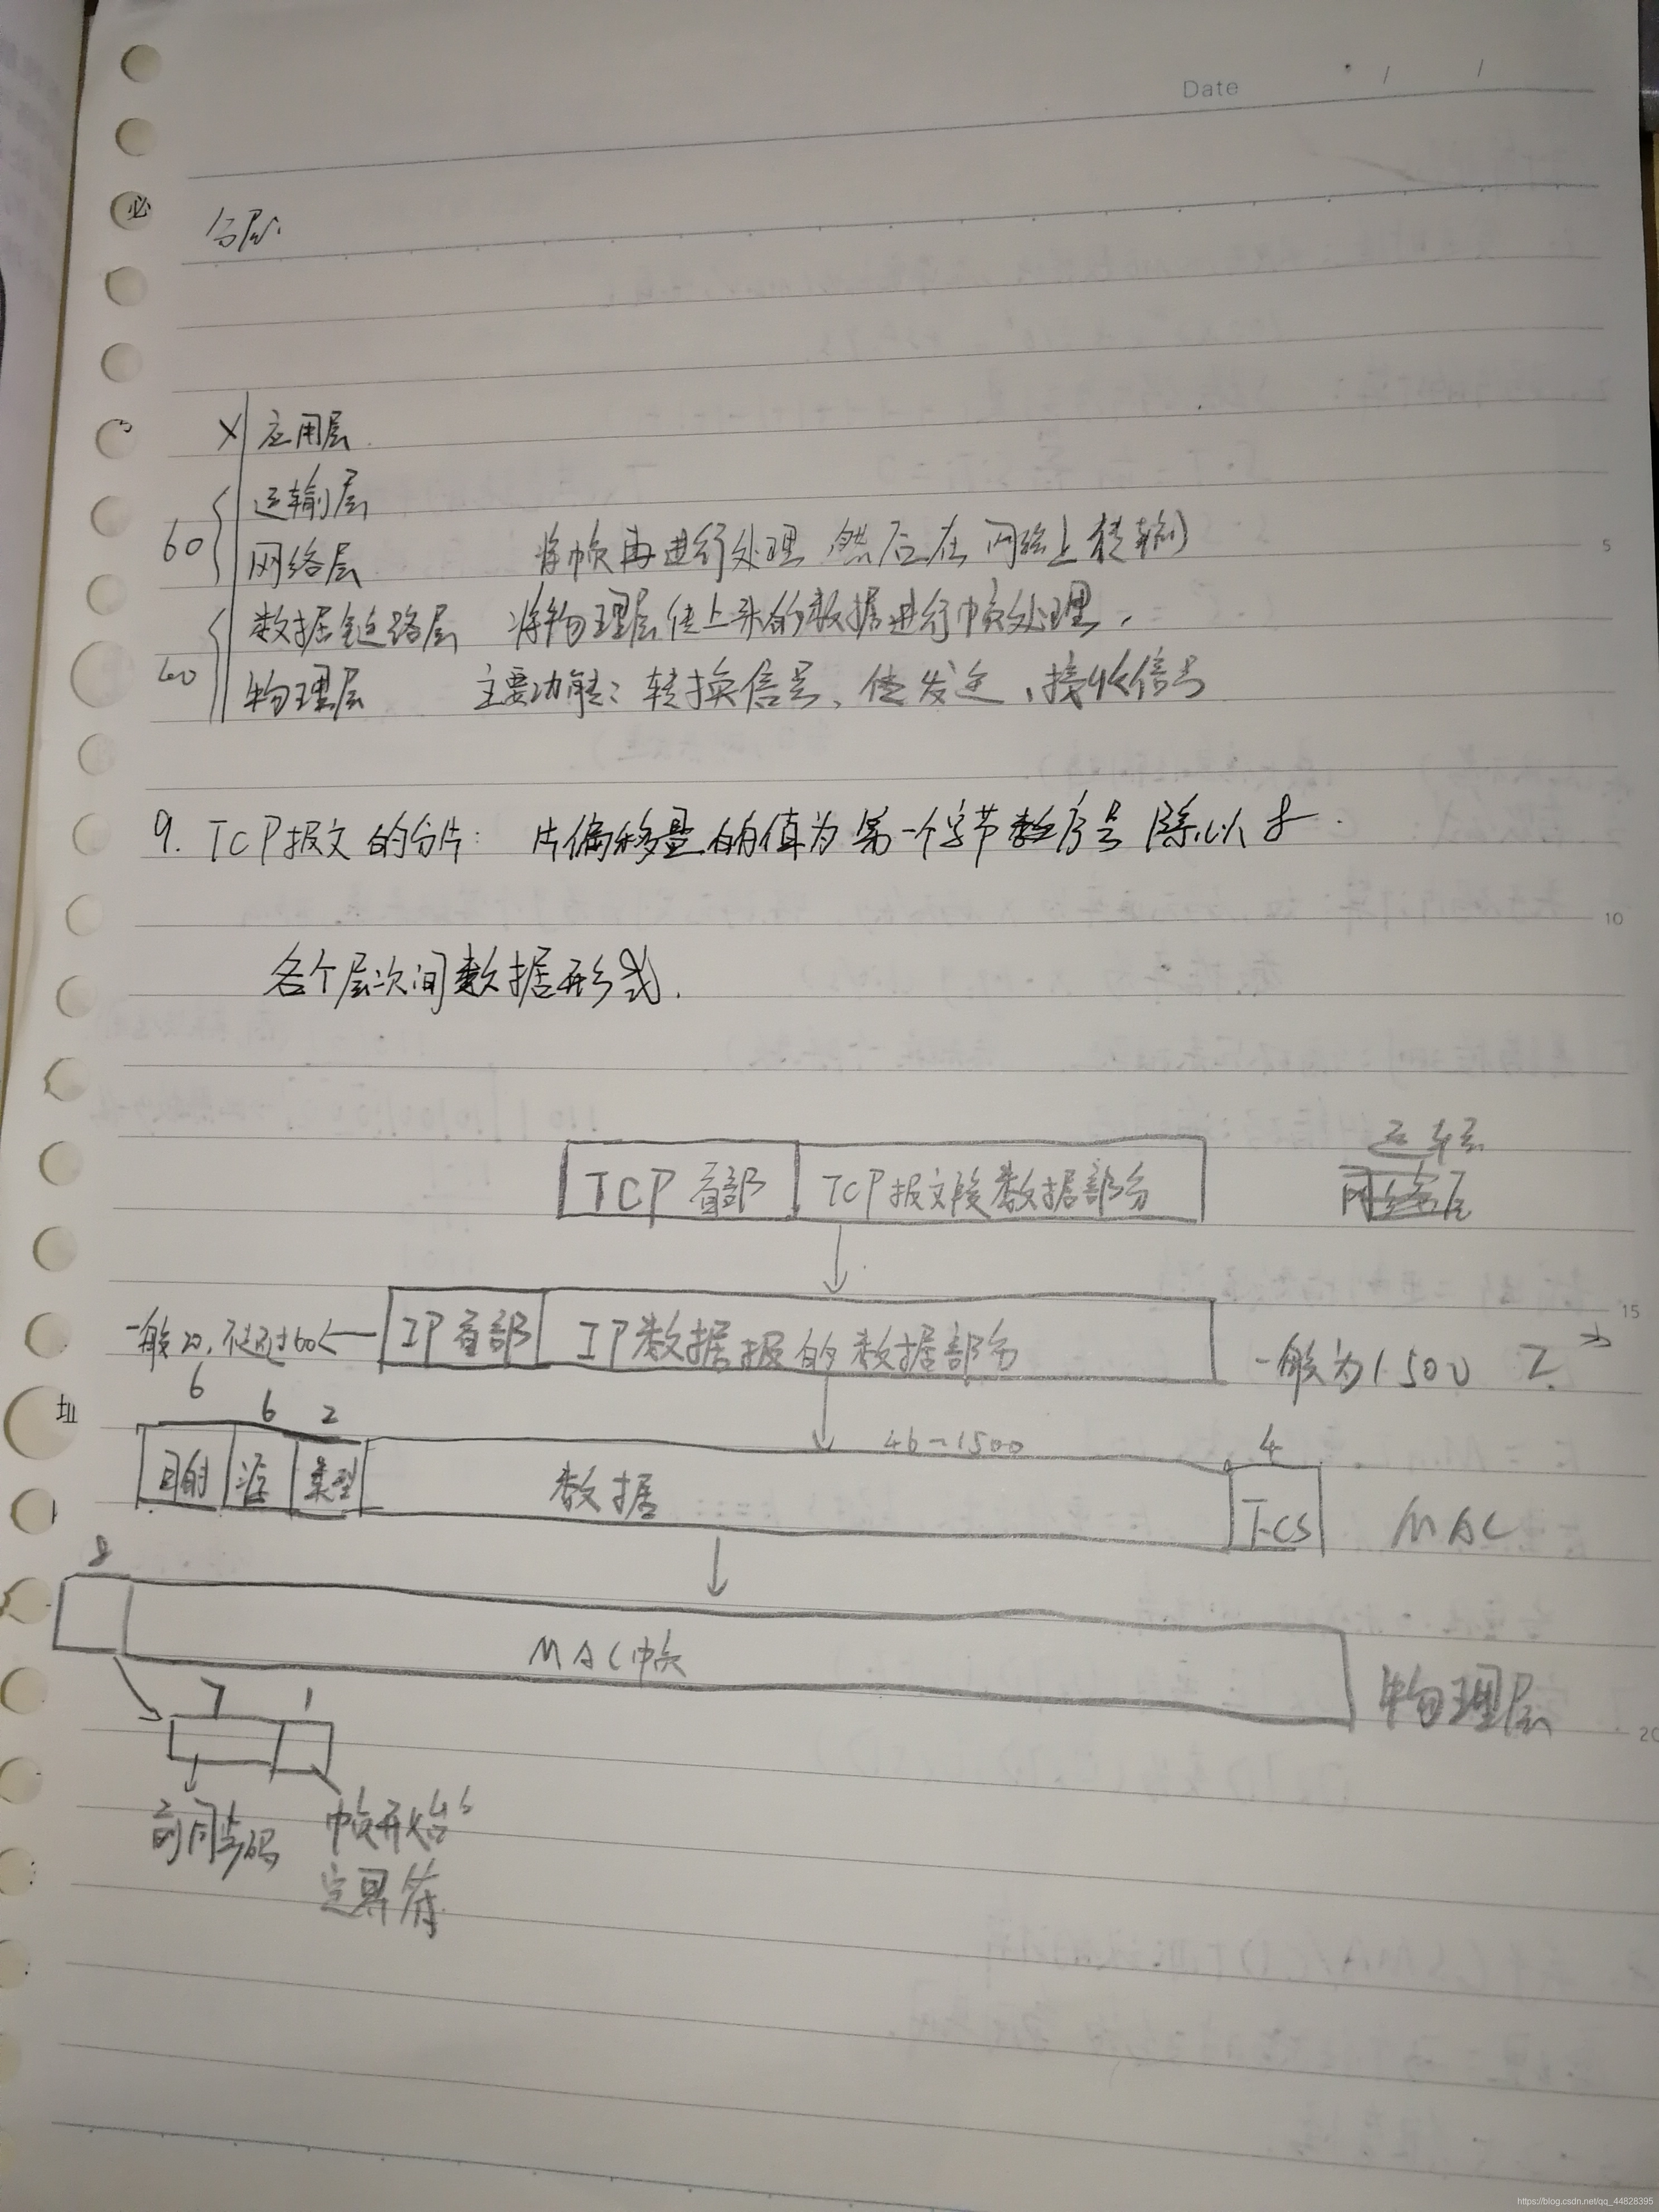 Date / /
必
分层
X 应用层
运输层
60 网络层 将帧再进行处理 然后在网络上传输
数据链路层 将物理层传上来的数据进行帧处理.
40 物理层 主要功能: 转换信号、传发送、接收信号
5
9. TCP报文的分片: 片偏移量的值为第一个字节数序号除以8.
10
各个层次间数据形式.
运输层
TCP首部 TCP报文段数据部分 网络层
15
一般20,不超过60 ← IP首部 IP数据报的数据部分 一般为1500
6 6 2 46~1500 4
址
目的 源 类型 数据 FCS MAC
8
MAC帧 物理层
20
7 1
前同步码 帧开始
定界符
https://blog.csdn.net/qq_44828395